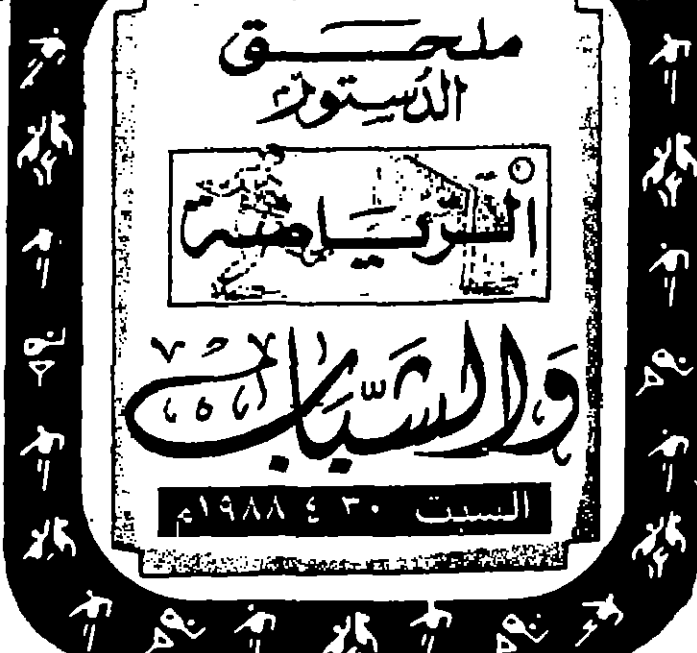 ملحق
الدستور
الرياضة
والشباب
السبت ٣٠ ٤ ١٩٨٨م